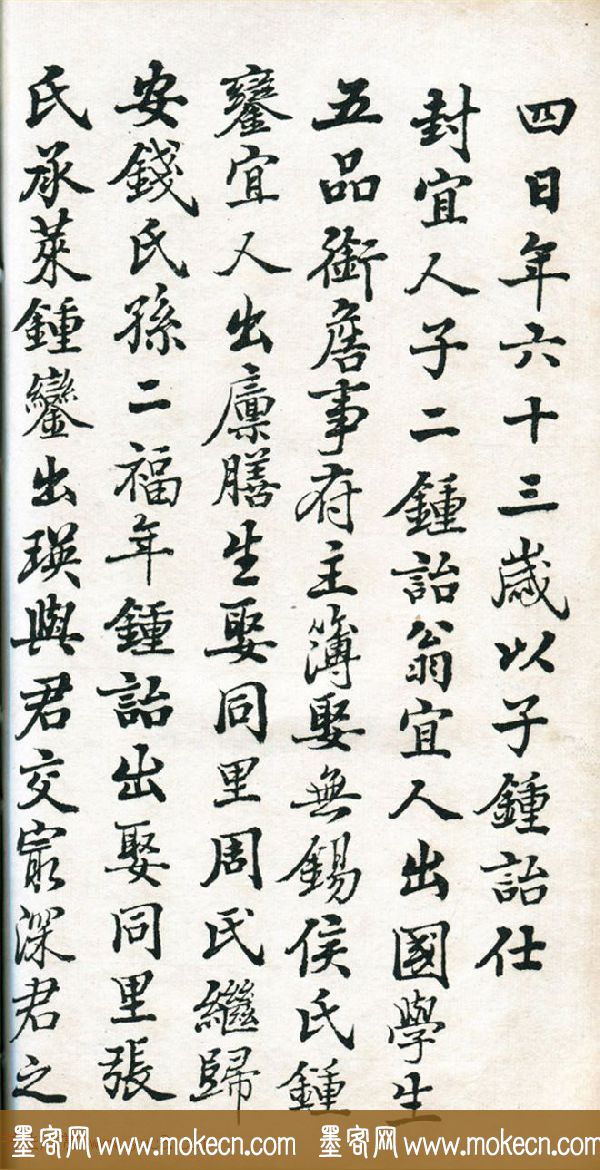 四日年六十三歲以子鍾詒仕
封宜人子二鍾詒翁宜人出國學生
五品銜詹事府主簿娶無錫侯氏鍾
鑾宜人出廩膳生娶同里周氏繼歸
安錢氏孫二福年鍾詒出娶同里張
氏承萊鍾鑾出瑛與君交最深君之
墨客网 www.mokecn.com 墨客网 www.mokecn.com